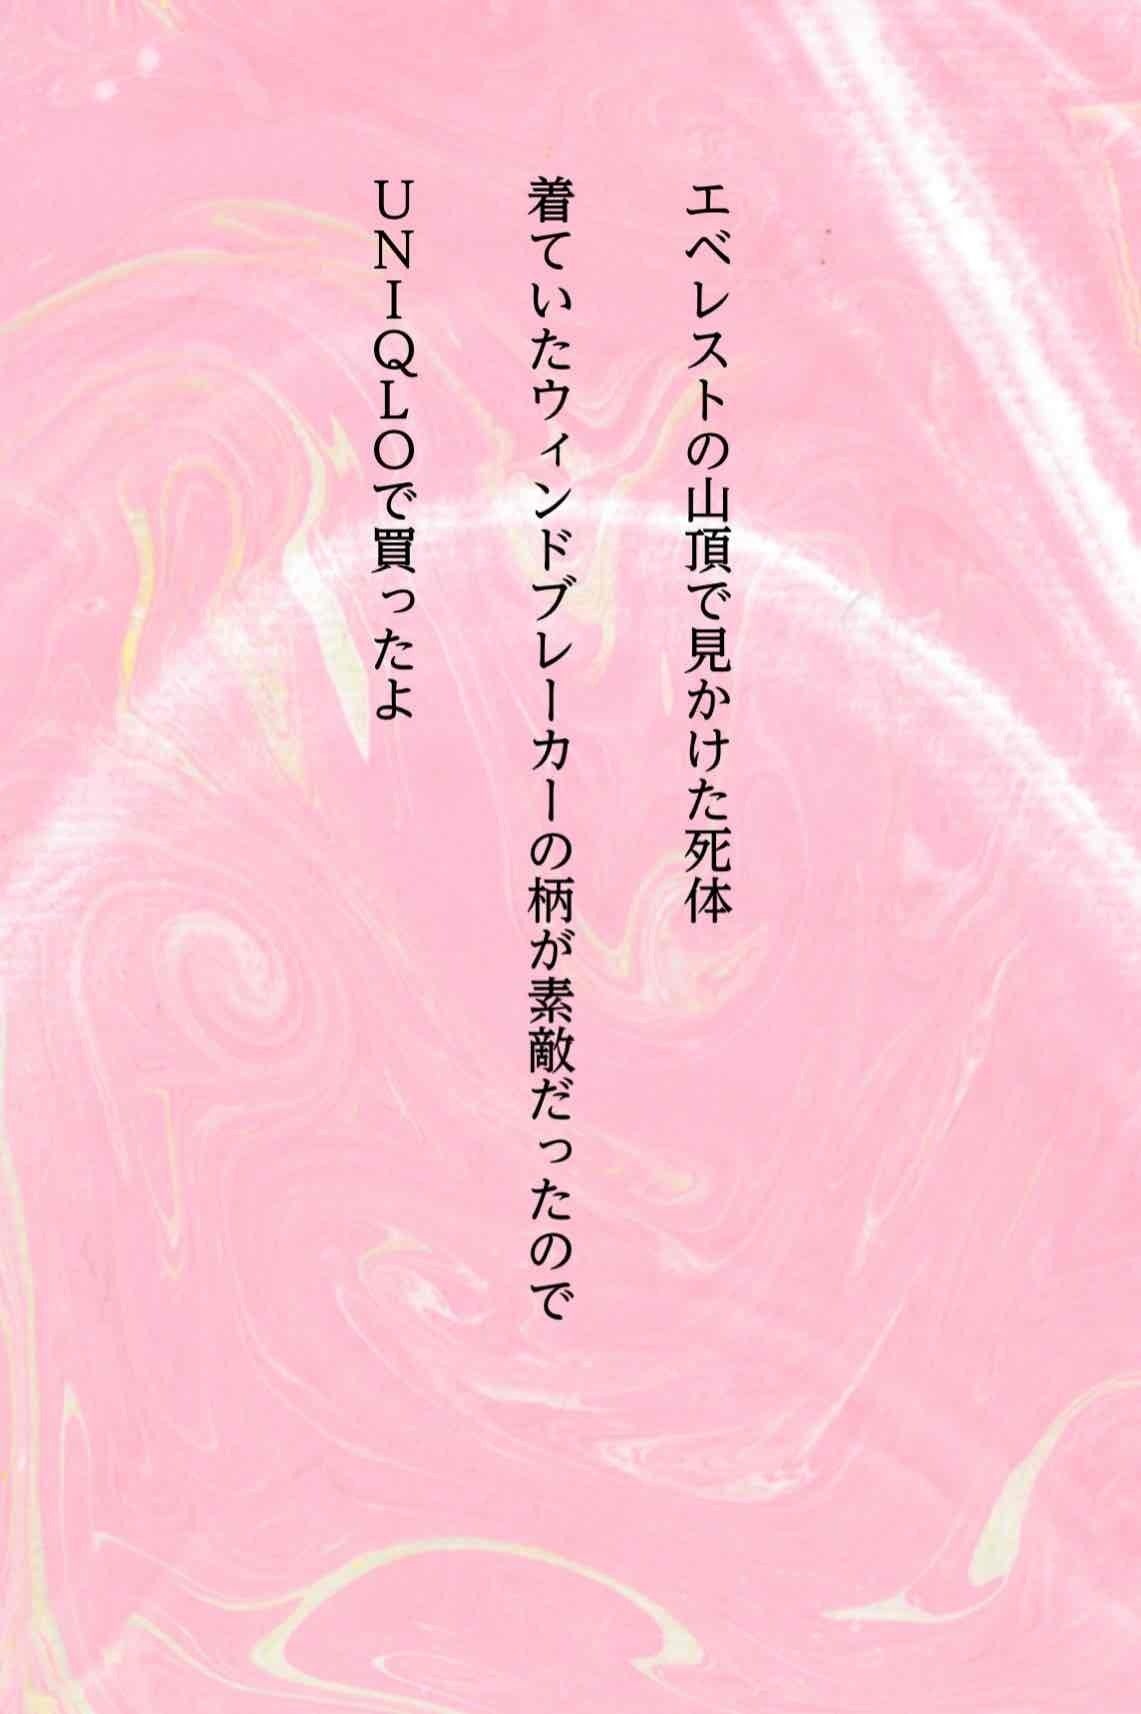 エベレストの山頂で見かけた死体
着ていたウィンドブレーカーの柄が素敵だったので
ＵＮＩＱＬＯで買ったよ